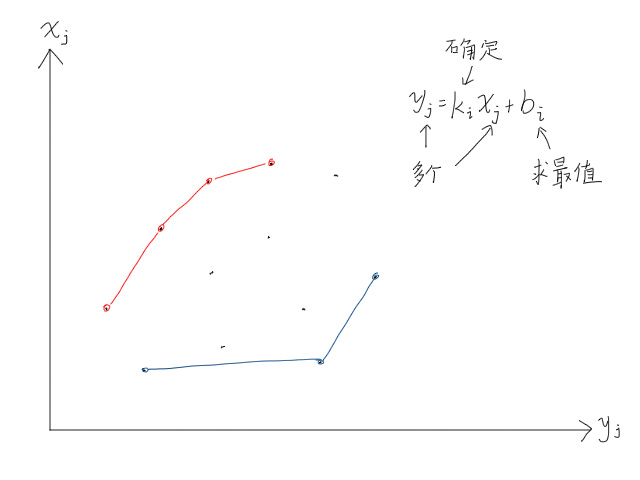 x_j
确定
y_j = k_i x_j + b_i
多个
求最值
y_j